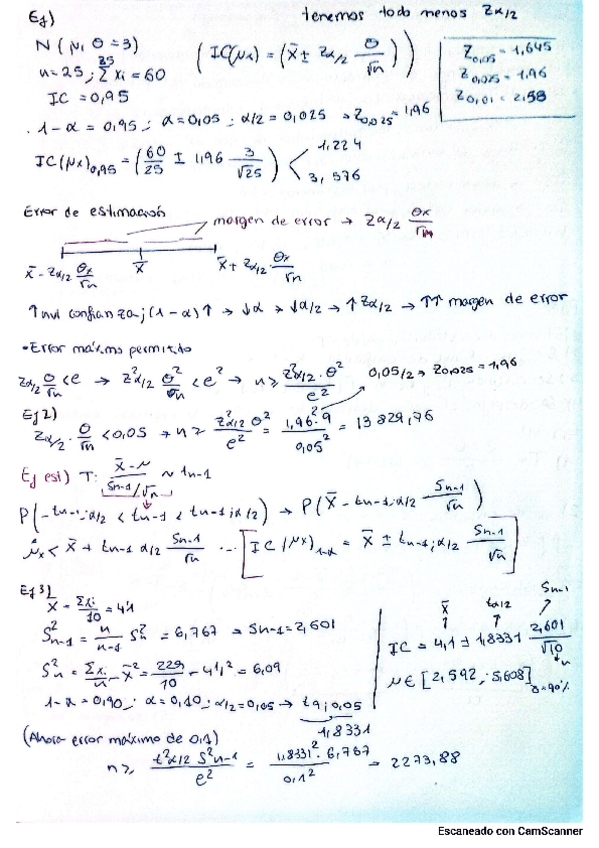 Ej)
tenemos todo menos Zα/2
N(μ, σ=3)
(IC(μx) = (x̄ ± Zα/2 σ/√n))
Z0,05 = 1,645
Z0,025 = 1,96
Z0,01 = 2,58
n=25; Σ²⁵ xi = 60
IC = 0,95
. 1-α = 0,95; α=0,05; α/2 = 0,025 → Z0,025 = 1,96
IC(μx)0,95 = (60/25 ± 1,96 3/√25) < 1,224
3,576
Error de estimación
margen de error → Zα/2 σx/√n
x̄ - Zα/2 σx/√n x̄ x̄ + Zα/2 σx/√n
↑ nvl confianza; (1-α) ↑ → ↓α → ↓α/2 → ↑Zα/2 → ↑↑ margen de error
• Error máximo permitido
Zα/2 σ/√n < e → Z²α/2 σ²/√n < e² → n ≥ Z²α/2 · σ²/e²
0,05/2 → Z0,025 = 1,96
Ej 2)
Zα/2 · σ/√n < 0,05 → n ≥ Z²α/2 σ²/e² = 1,96² · 9/0,05² = 13829,76
Ej est) T: x̄ - μ / Sn-1/√n ~ tn-1
P(-tn-1; α/2 < tn-1 < tn-1; α/2) → P(x̄ - tn-1; α/2 Sn-1/√n)
μx < x̄ + tn-1 α/2 Sn-1/√n ... [IC(μx)1-α = x̄ ± tn-1; α/2 Sn-1/√n]
Ej 3)
x̄ = Σxi/10 = 4,1
S²n-1 = n/n-1 S²n = 6,767 → Sn-1 = 2,601
S²n = Σxi/n - x̄² = 229/10 - 4,1² = 6,09
1-α = 0,90; α = 0,10; α/2 = 0,05 → t9; 0,05
1,8331
x̄ tα/2 Sn-1
IC = 4,1 ± 1,8331 2,601/√10 → n
μ ∈ [2,592, 5,608]
(Ahora error máximo de 0,1)
n ≥ t²α/2 S²n-1/e² = 1,8331² · 6,767/0,1² → 2273,88
Escaneado con CamScanner